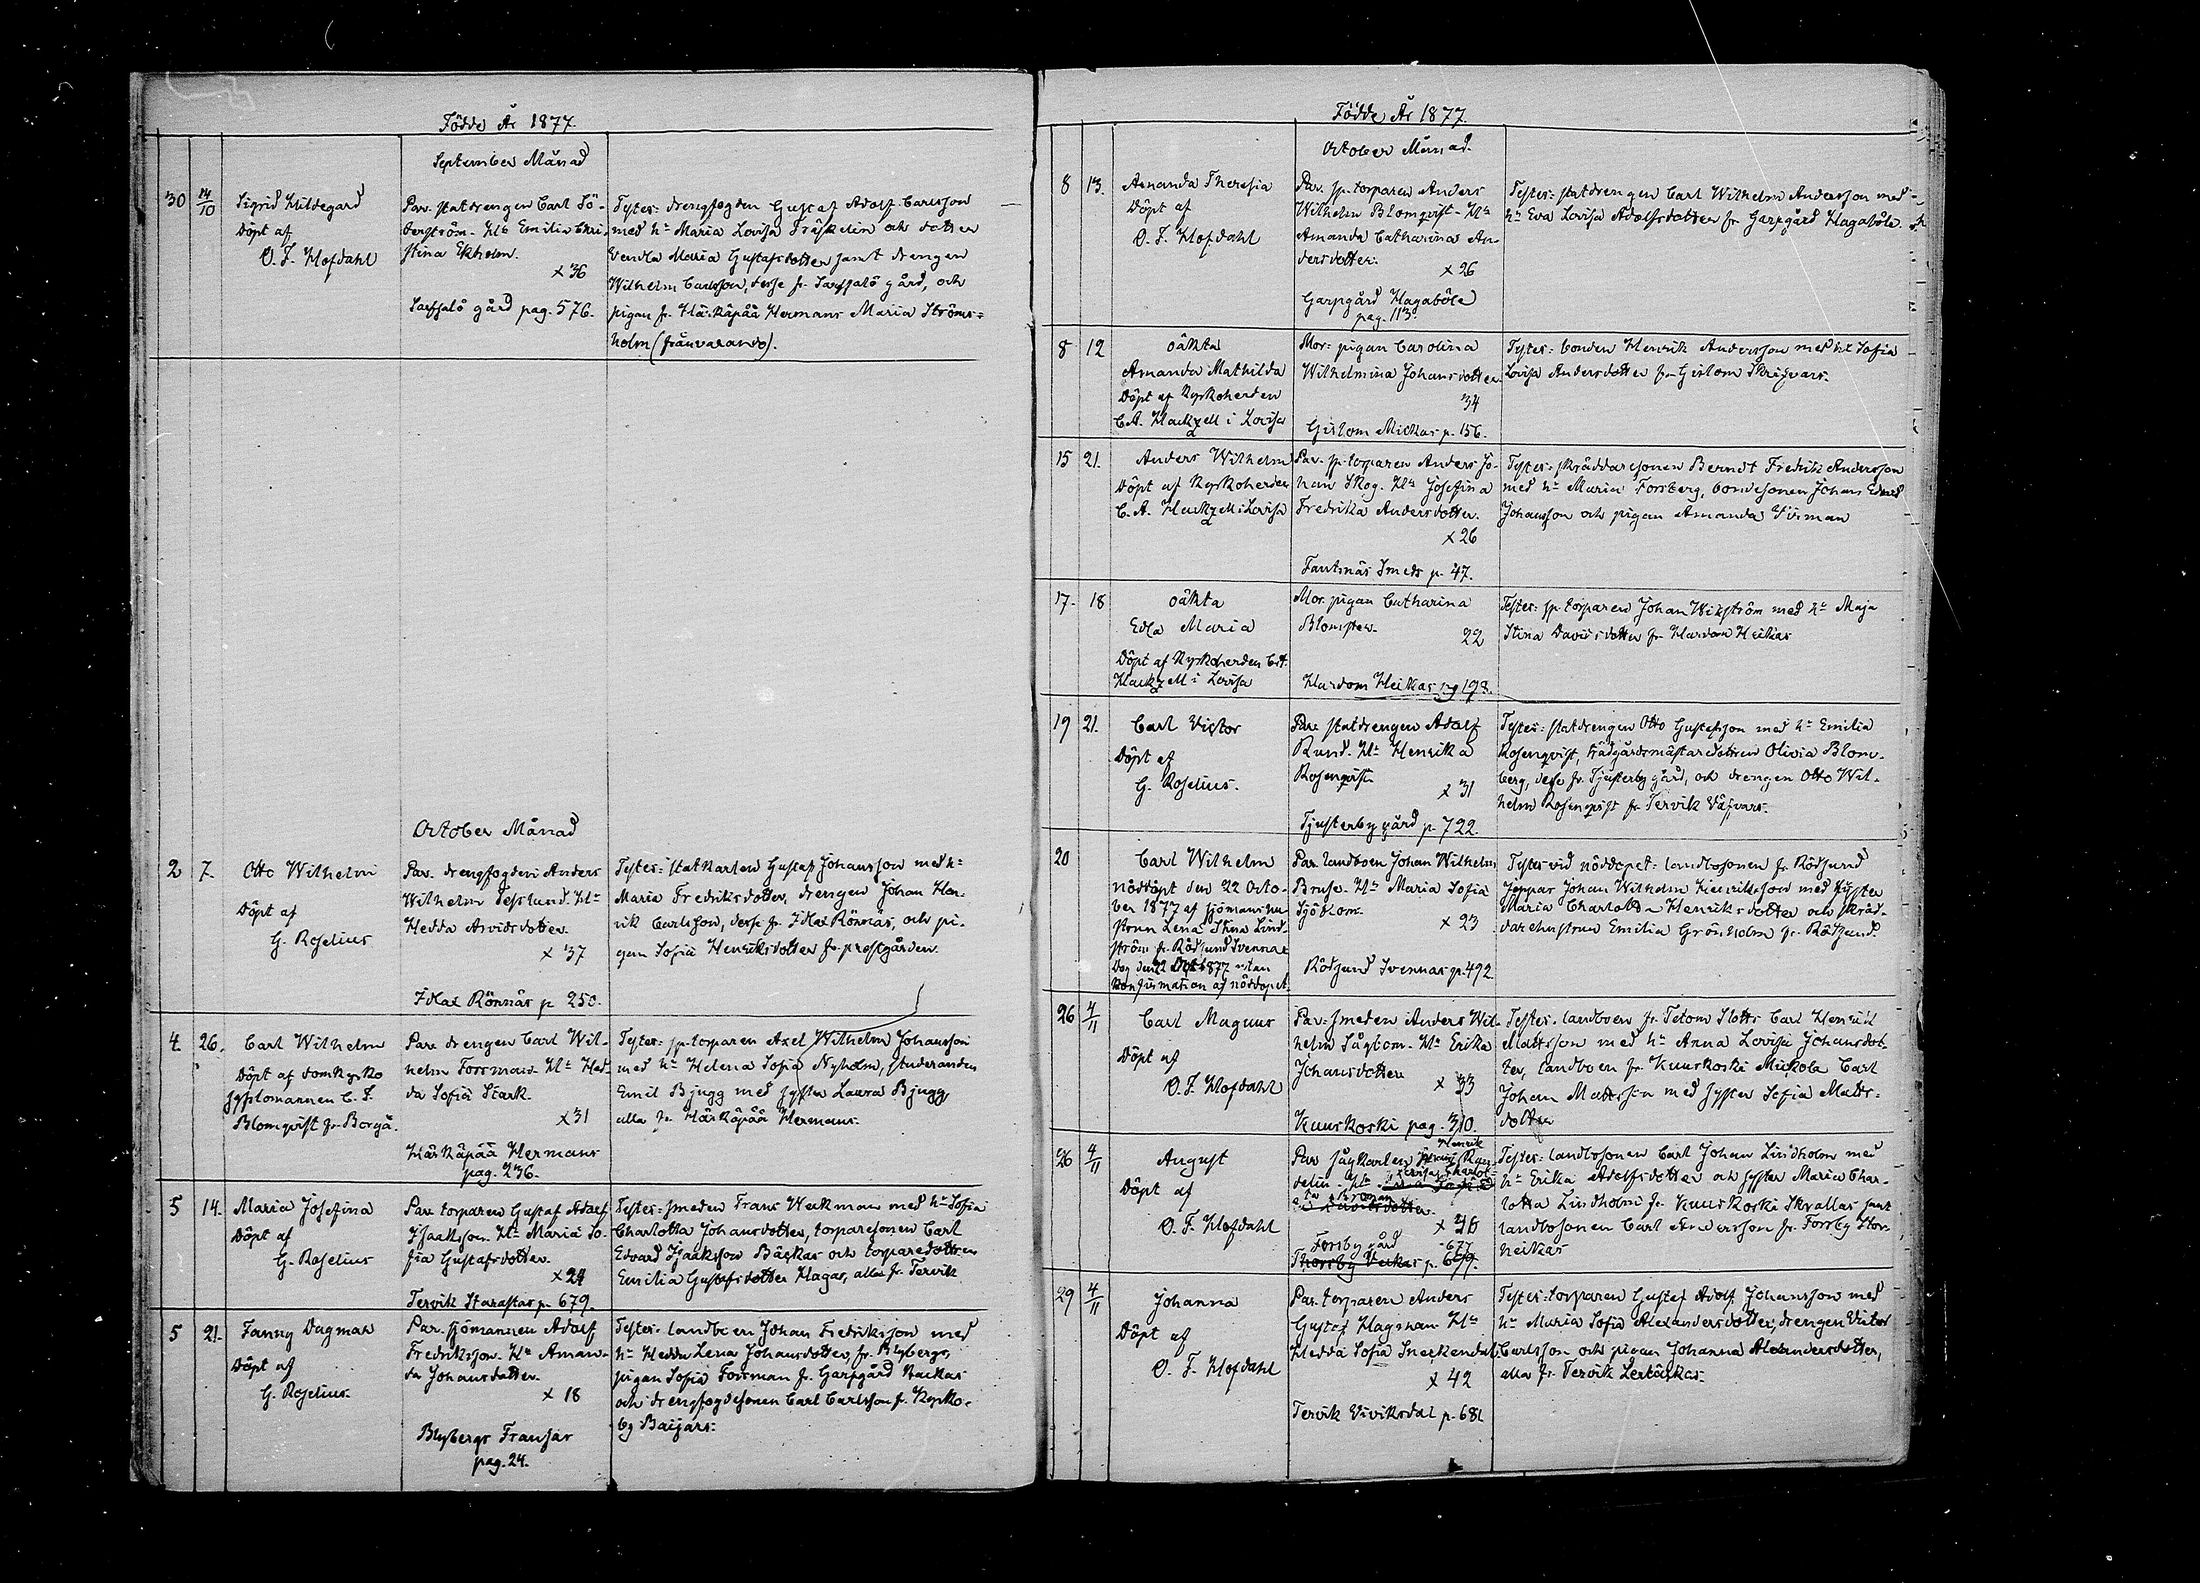 Födde År 1877.
September Månad
30 14/10 Sigrid Hildegard
Döpt af
O. F. Hofdahl
Par. statdrengen Carl Sö-
derström. Hu Emilia Chri-
stina Ekholm.
x 36
Sarfsalö gård pag. 576.
Tester: drengfogden Gustaf Adolf Carlsson
med hu Maria Lovisa Träskelin och dotter
Vendla Maria Gustafsdotter samt drengen
Wilhelm Carlsson, desse fr. Sarfsalö gård, och
pigan fr. Härkäpää Hermans Maria Ströms-
holm (frånvarande).
October Månad
2 7. Otto Wilhelm
Döpt af
G. Roselius
Par. drengfogden Anders
Wilhelm Teslund. Hu
Hedda Arvidsdotter.
x 37
Rönnäs p 250.
Tester: statkarlen Gustaf Johansson med hu
Maria Fredriksdotter, drengen Johan Hen-
rik Carlsson, desse fr. Rönnäs, och pi-
gan Sofia Henriksdotter fr. prestgården.
4 26. Carl Wilhelm
Döpt af domkyrko
sysslomannen C. F.
Blomqvist fr. Borgå.
Par. drengen Carl Wil-
helm Forsman. Hu Hed-
da Sofia Stark.
x 31
Härkäpää Hermans
pag. 236.
Tester: sp. torparen Axel Wilhelm Johansson
med hu Helena Sofia Nyholm, studeranden
Emil Bjugg med syster Laura Bjugg,
alla fr. Härkäpää Hermans.
5 14. Maria Josefina
Döpt af
G. Roselius
Par. torparen Gustaf Adolf
Isaksson. Hu Maria So-
fia Gustafsdotter.
x 24
Tervik Starastas p. 679.
Tester: smeden Frans Weckman med hu Sofia
Charlotta Johansdotter, torparesonen Carl
Edvard Isaksson Bäckas och torparedottren
Emilia Gustafsdotter Hagas, alla fr. Tervik
5 21. Fanny Dagmar
Döpt af
G. Roselius.
Par. sjömannen Adolf
Fredriksson. Hu Aman-
da Johansdotter.
x 18
Blybergs Fransas
pag. 24.
Tester: landboen Johan Fredriksson med
hu Hedda Lena Johansdotter, fr. Blybergs,
pigan Sofia Forsman fr. Garpgård Backas
och drengfogdesonen Carl Carlsson fr. Kyrko-
by Baijars.
Födde År 1877.
October Månad.
8 13. Amanda Theresia
Döpt af
O. F. Hofdahl
Par. sp. torparen Anders
Wilhelm Blomqvist. Hu
Amanda Catharina An-
dersdotter.
x 26
Garpgård Hagaböle
pag. 113.
Tester: statdrengen Carl Wilhelm Andersson med
hu Eva Lovisa Adolfsdotter fr. Garpgård Hagaböle.
8 12 oäkta
Amanda Mathilda
Döpt af Kyrkoherden
C. A. Hackzell i Lovisa
Mor: pigan Carolina
Wilhelmina Johansdotter
34
Gislom Mickas p. 156.
Tester: bonden Henrik Andersson med hu Sofia
Lovisa Andersdotter fr. Gislom Skrifvars.
15 21. Anders Wilhelm
Döpt af Kyrkoherden
C. A. Hackzell i Lovisa
Par. sp. torparen Anders Jo-
han Skog. Hu Josefina
Fredrika Andersdotter.
x 26
Fantsnäs Smeds p. 47.
Tester: skräddaresonen Berndt Fredrik Andersson
med hu Maria Forsberg, bondesonen Johan Edvard
Johansson och pigan Amanda
17. 18 oäkta
Edla Maria
Döpt af Kyrkoherden C.A.
Hackzell i Lovisa
Mor. pigan Catharina
Blomster.
22
Hardom Heikas pg 198.
Tester: sp. torparen Johan Wikström med hu Maja
Stina Davidsdotter fr. Hardom Heikas
19 21. Carl Victor
Döpt af
G. Roselius.
Par. statdrengen Adolf
Rund. Hu Henrika
Rosenqvist
x 31
Tjusterby gård p. 722.
Tester: statdrengen Otto Gustafsson med hu Emilia
Rosenqvist, trädgårdsmästaredottren Olivia Blom-
berg, desse fr. Tjusterby gård, och drengen Otto Wil-
helm Rosenqvist fr. Tervik Väfvars.
20 Carl Wilhelm
nöddöpt den 22 Octo-
ber 1877 af sjömanshu-
strun Lena Stina Lind-
ström fr. Rödsund Svennas
Dog den 22 Oct 1877 utan
Konfirmation af nöddopet.
Par. landboen Johan Wilhelm
Bruse. Hu Maria Sofia
Sjöblom.
x 23
Rödsund Svennas p. 492.
Tester vid nöddopet: landbosonen fr. Rödsund
Jeppas Johan Wilhelm Henriksson med syster
Maria Charlotta Henriksdotter och skräd-
darehustrun Emilia Grönholm fr. Rödsund.
26 4/11 Carl Magnus
Döpt af
O. F. Hofdahl
Par. smeden Anders Wil-
helm Sågbom. Hu Erika
Johansdotter
x 33
Kuuskoski pag. 310.
Tester. landboen fr. Tetom Slotts Carl Henrik
Mattsson med hu Anna Lovisa Johansdot-
ter, landboen fr. Kuuskoski Mickola Carl
Johan Mattsson med syster Sofia Matts-
dotter
26 4/11 August
Döpt af
O. F. Hofdahl
Par. sågkarlen Henrik
delin. Hu Lovisa Charlot-
ta
x 40
Forsby gård 677.
Thorsby p. 659.
Tester: landbosonen Carl Johan Lindholm med
hu Erika Adolfsdotter och syster Maria Char-
lotta Lindholm fr. Kuuskoski Skrallas samt
landbosonen Carl Andersson fr. Forsby Stor-
heikas
29 4/11 Johanna
Döpt af
O. F. Hofdahl
Par. torparen Anders
Gustaf Hagman. Hu
Hedda Sofia Sneckendal.
x 42
Tervik Viviksdal p. 681
Tester: torparen Gustaf Adolf Johansson med
hu Maria Sofia Alexandersdotter, drengen Victor
Carlsson och pigan Johanna Alexandersdotter,
alla fr. Tervik Lerbäckas.